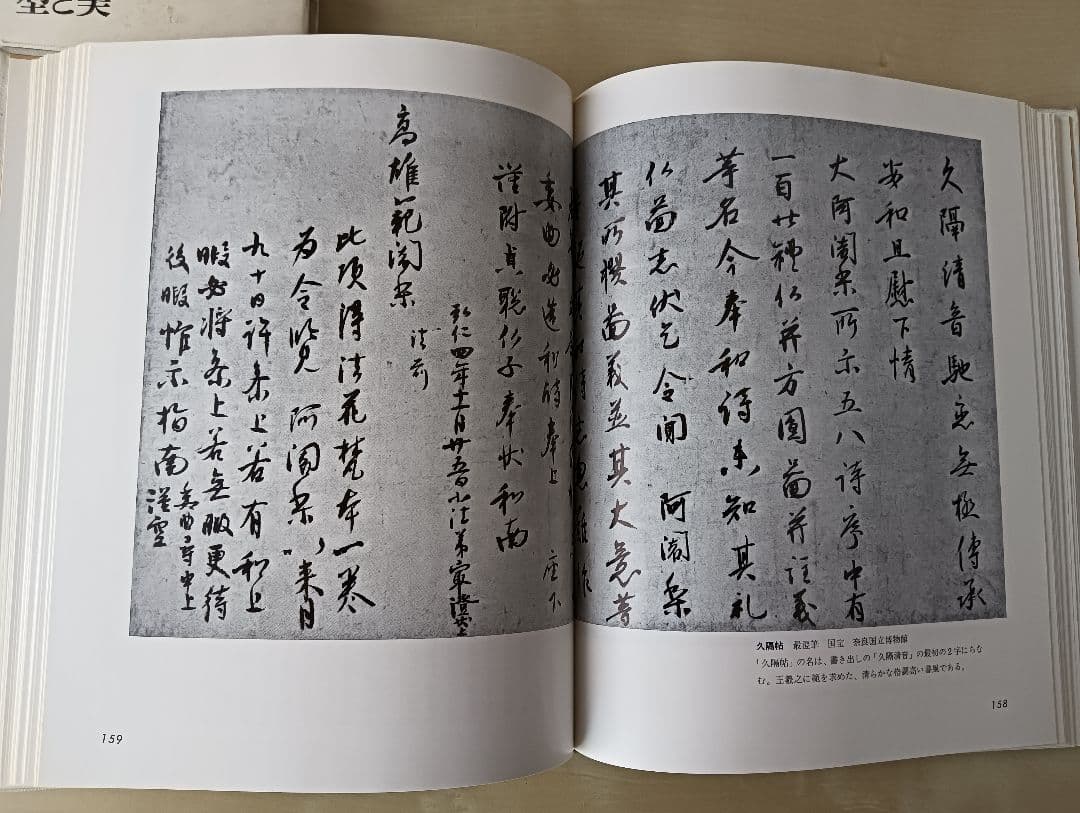 久隔清音馳恋無極傳承
安和且慰下情
大阿闍梨所示五八詩序中有
一百廿禮仏并方圓圖并註義
等名今奉和詩未知其礼
仏圖者伏乞令聞 阿闍梨
其所撰圖義並其大意等
委曲必造和詩奉上 座下
謹附貞聡仏子奉状和南
弘仁四年十一月廿五日小法弟最澄状上
高雄範闍梨
法前
此頃得法花梵本一巻
為令覧 阿闍梨以来月
九十日許参上若有和上
暇必将参上若無暇更待
後暇惟示指南 委曲尋申上
謹空
久隔帖 最澄筆 国宝 奈良国立博物館
「久隔帖」の名は、書き出しの「久隔清音」の最初の2字にちな
む。王羲之に範を求めた、清らかな格調高い書風である。
158
159